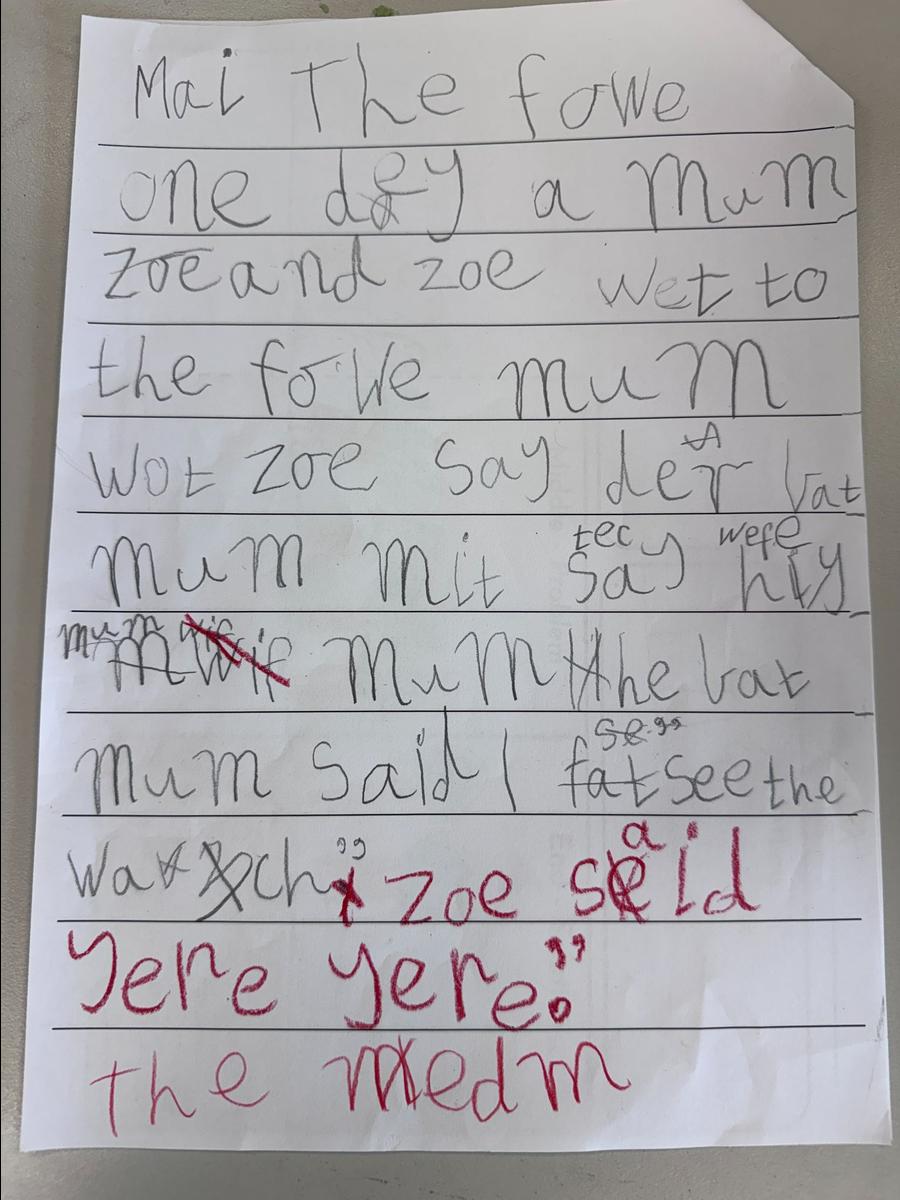 Mai The fowe
one dey a mum
zoe and zoe wet to
the fowe mum
wot zoe say der bat
tec were
mum mit say hiy
mum mum the bat
se.”
mum said I fat see the
watch” zoe said
yere yere.”
the medm